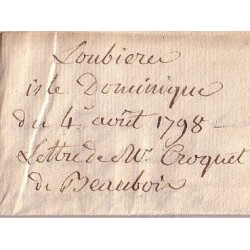 Loubiere
isle Dominique
du 4e août 1798
Lettre de Mr. Croquet
de Beaubois